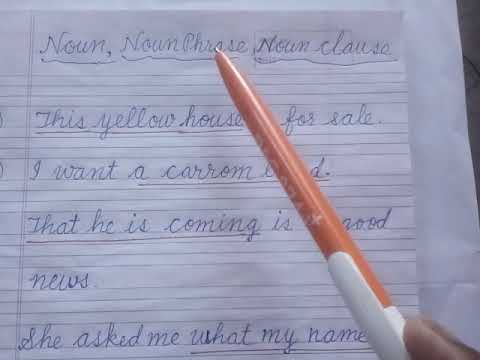 Noun, Noun Phrase, Noun clause
) This yellow house for sale.
) I want a carrom
That he is coming is good
news.
She asked me what my name